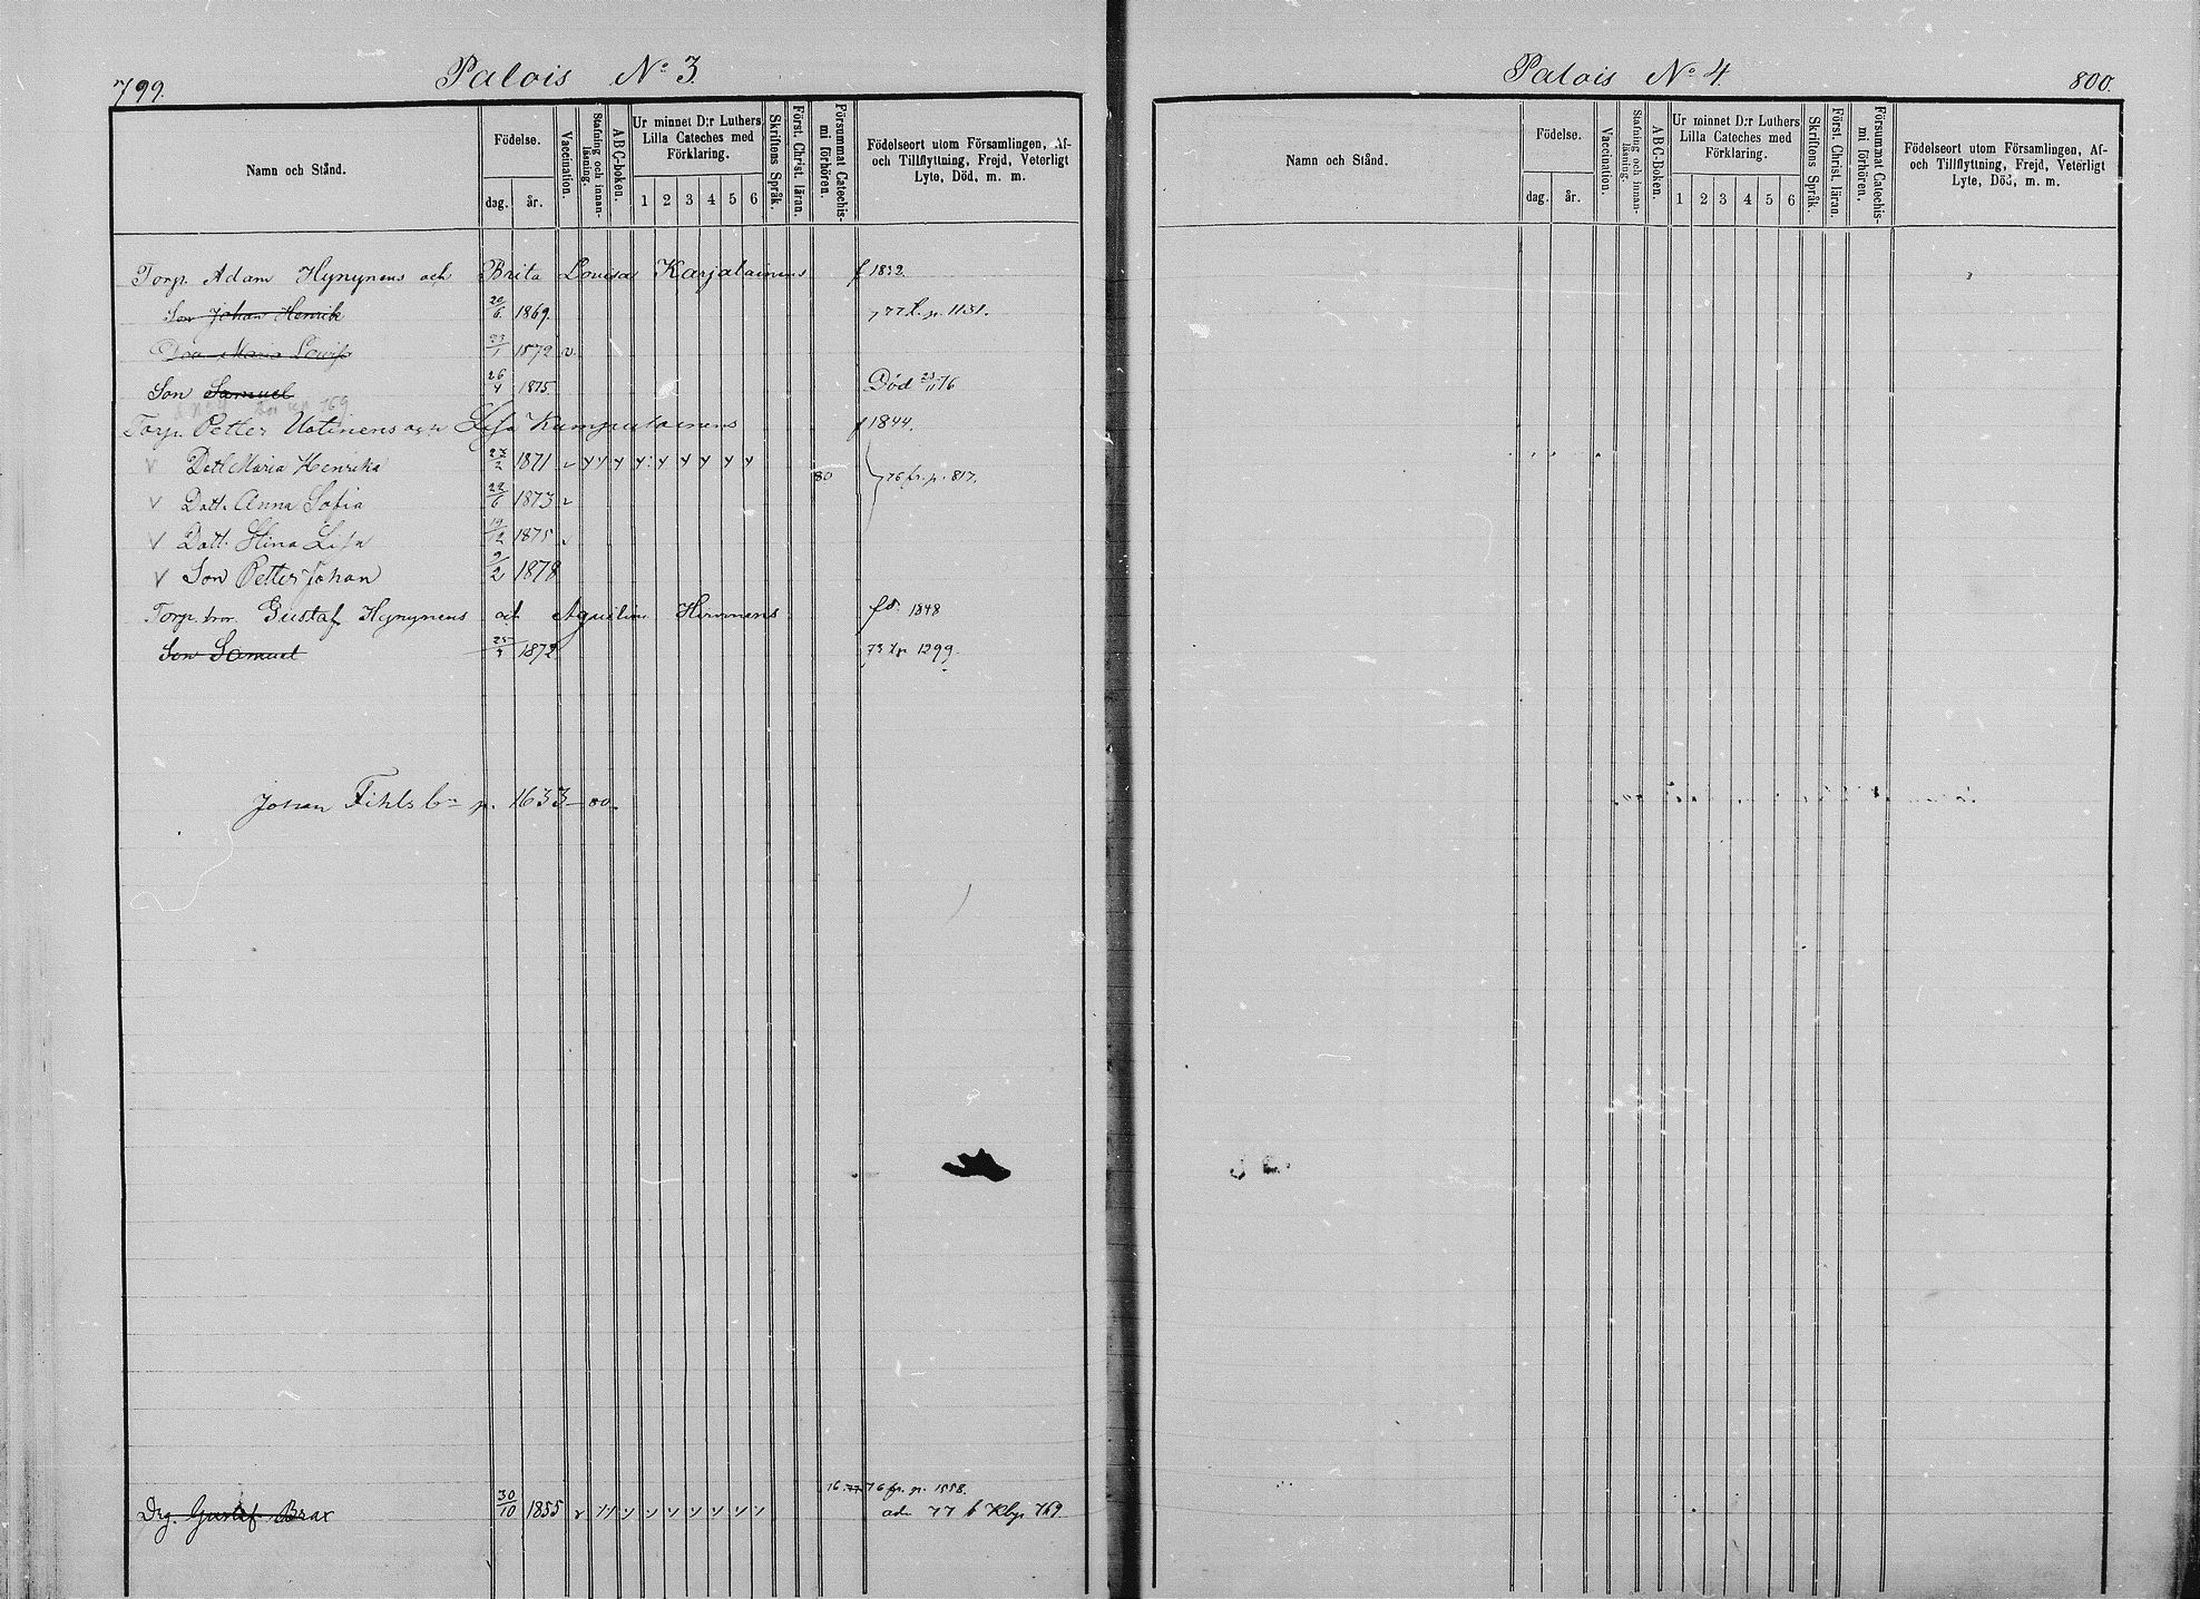 799.
Palois No 3.
Namn och Stånd.
Födelse.
dag.
år.
Vaccination.
Stafning och innan-
läsning.
ABC-boken.
Ur minnet D:r Luthers
Lilla Cateches med
Förklaring.
1 2 3 4 5 6
Skriftens Språk.
Först. Christ. läran.
Försummat Catechis-
mi förhören.
Födelseort utom Församlingen, Af-
och Tillflyttning, Frejd, Veterligt
Lyte, Död, m. m.
Torp. Adam Hynynens och Brita Lovisa Karjalainens f 1832.
Son Johan Henrik 20/6 1869. 77 p. 1131.
Maria 1872 v
Son Samuel 26/4 1875. Död 76
Torp. Petter Uotinens Lisa Kumpulainens f 1844.
v Dott Maria Henrika 27/2 1871 80 76 fr. p. 817.
v Dott. Anna Sofia 22/6 1873 v
v Dott. Stina Lisa 19/12 1875
v Son Petter Johan 9/2 1878
Torp. bror. Gustaf Hynynens och Hirvonens 1848
Son Samuel 1872 1299.
Johan p. 1633
Drg. Gustaf Brax 30/10 1855 76 fr. p. 1558.
77 769
Palois No 4.
800.
Namn och Stånd.
Födelse.
dag.
år.
Vaccination.
Stafning och innan-
läsning.
ABC-Boken.
Ur minnet D:r Luthers
Lilla Cateches med
Förklaring.
1 2 3 4 5 6
Skriftens Språk.
Först. Christ. läran.
Försummat Catechis-
mi förhören.
Födelseort utom Församlingen, Af-
och Tillflyttning, Frejd, Veterligt
Lyte, Död, m. m.